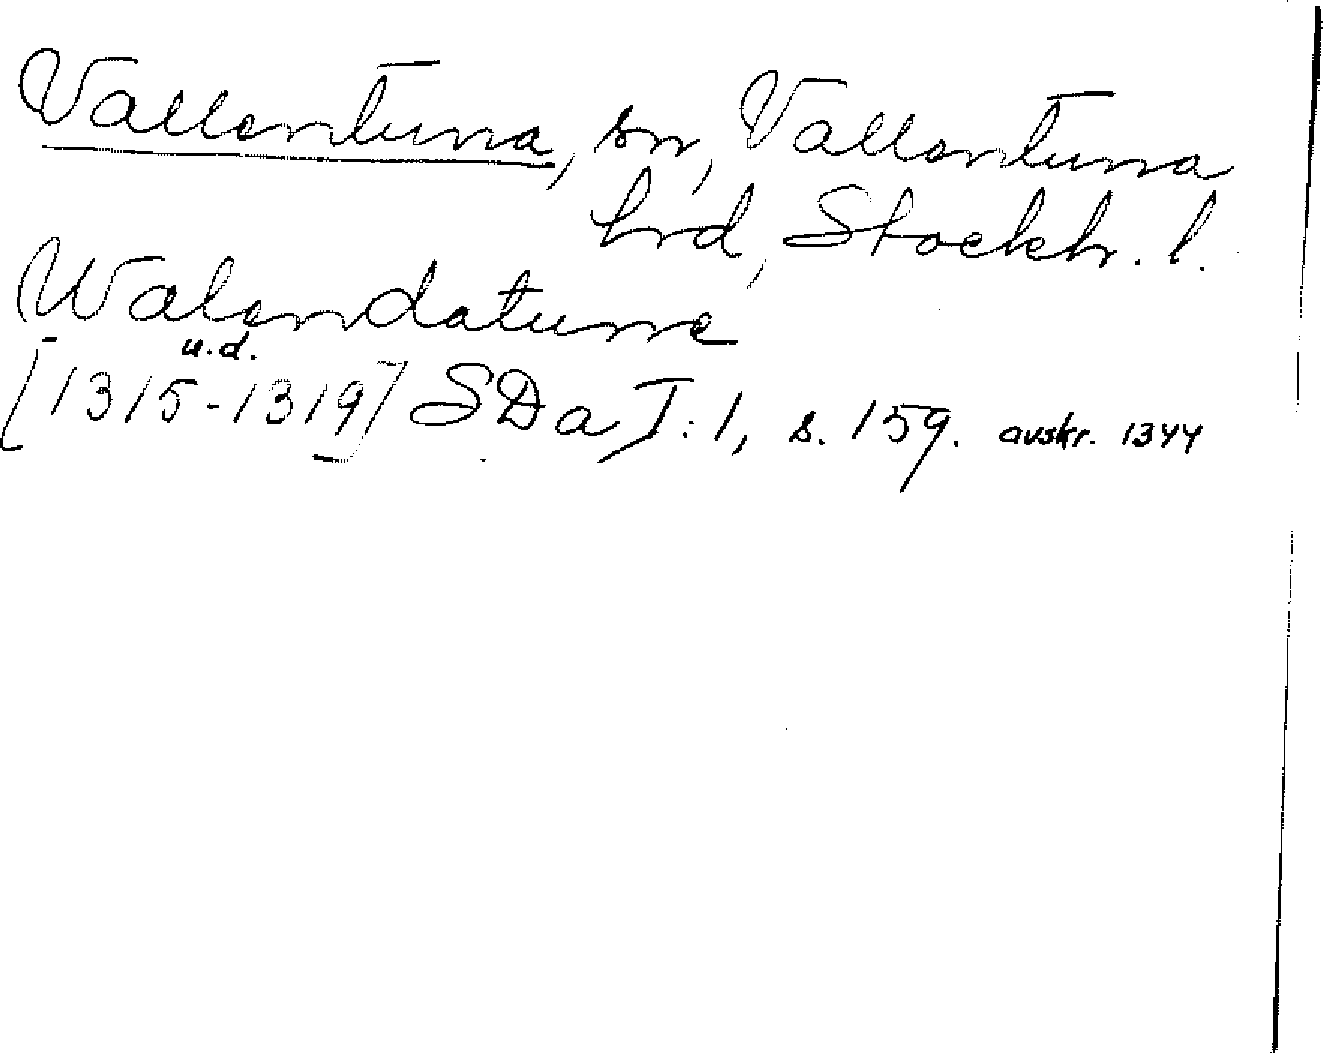 Vallentuna, sn, Vallentuna
hrd, Stockh. l.
Walendatune
u.d.
[1315-1319] SDa I:1, s. 159. avskr. 1344